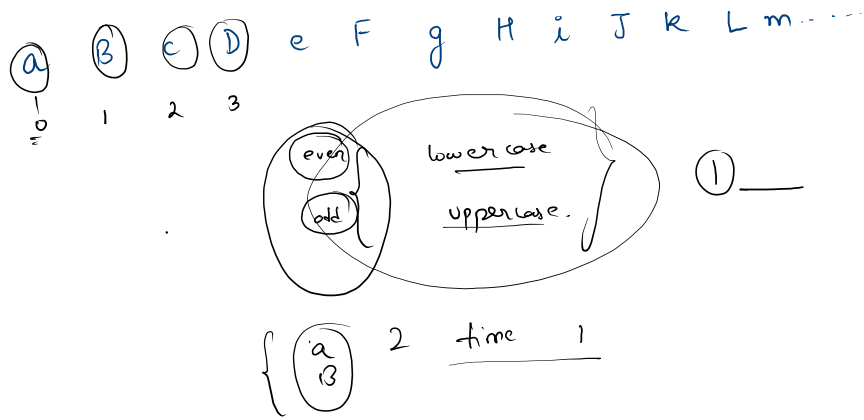 a B c D e F g H i J k L m.....
0 1 2 3
even lowercase
odd uppercase.
1
a 2 time 1
B